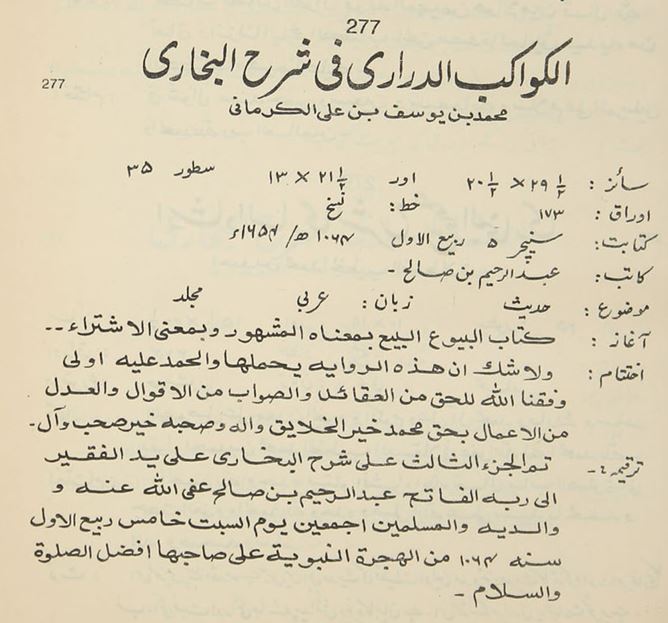 277
الکواکب الدراری فی شرح البخاری
277
محمد بن یوسف بن علی الکرمانی
سائز : ۲۹ ۱/۲ × ۲۰ ۱/۲ اور ۲۱ ۱/۲ × ۱۳ سطور ۳۵
اوراق : ۱۷۳ خط : نسخ
کتابت : سنیچر ۵ ربیع الاول ۱۰۶۴ھ/ ۱۶۵۴ء
کاتب : عبدالرحیم بن صالح -
موضوع : حدیث زبان : عربی مجلد
آغاز : کتاب البیوع البیع بمعناه المشهور وبمعنی الاشتراء --
اختتام : ولا شك ان هذه الروایه یحملها والحمد علیه اولی
وفقنا الله للحق من العقائد والصواب من الاقوال والعدل
من الاعمال بحق محمد خیر الخلایق واله وصحبه خیر صحب وآل-
ترقیمہ :- تم الجزء الثالث علی شرح البخاری علی ید الفقیر
الی ربه الفاتح عبدالرحیم بن صالح عفی الله عنه و
والدیه والمسلمین اجمعین یوم السبت خامس ربیع الاول
سنه ۱۰۶۴ من الهجرة النبویة علی صاحبها افضل الصلوة
والسلام -